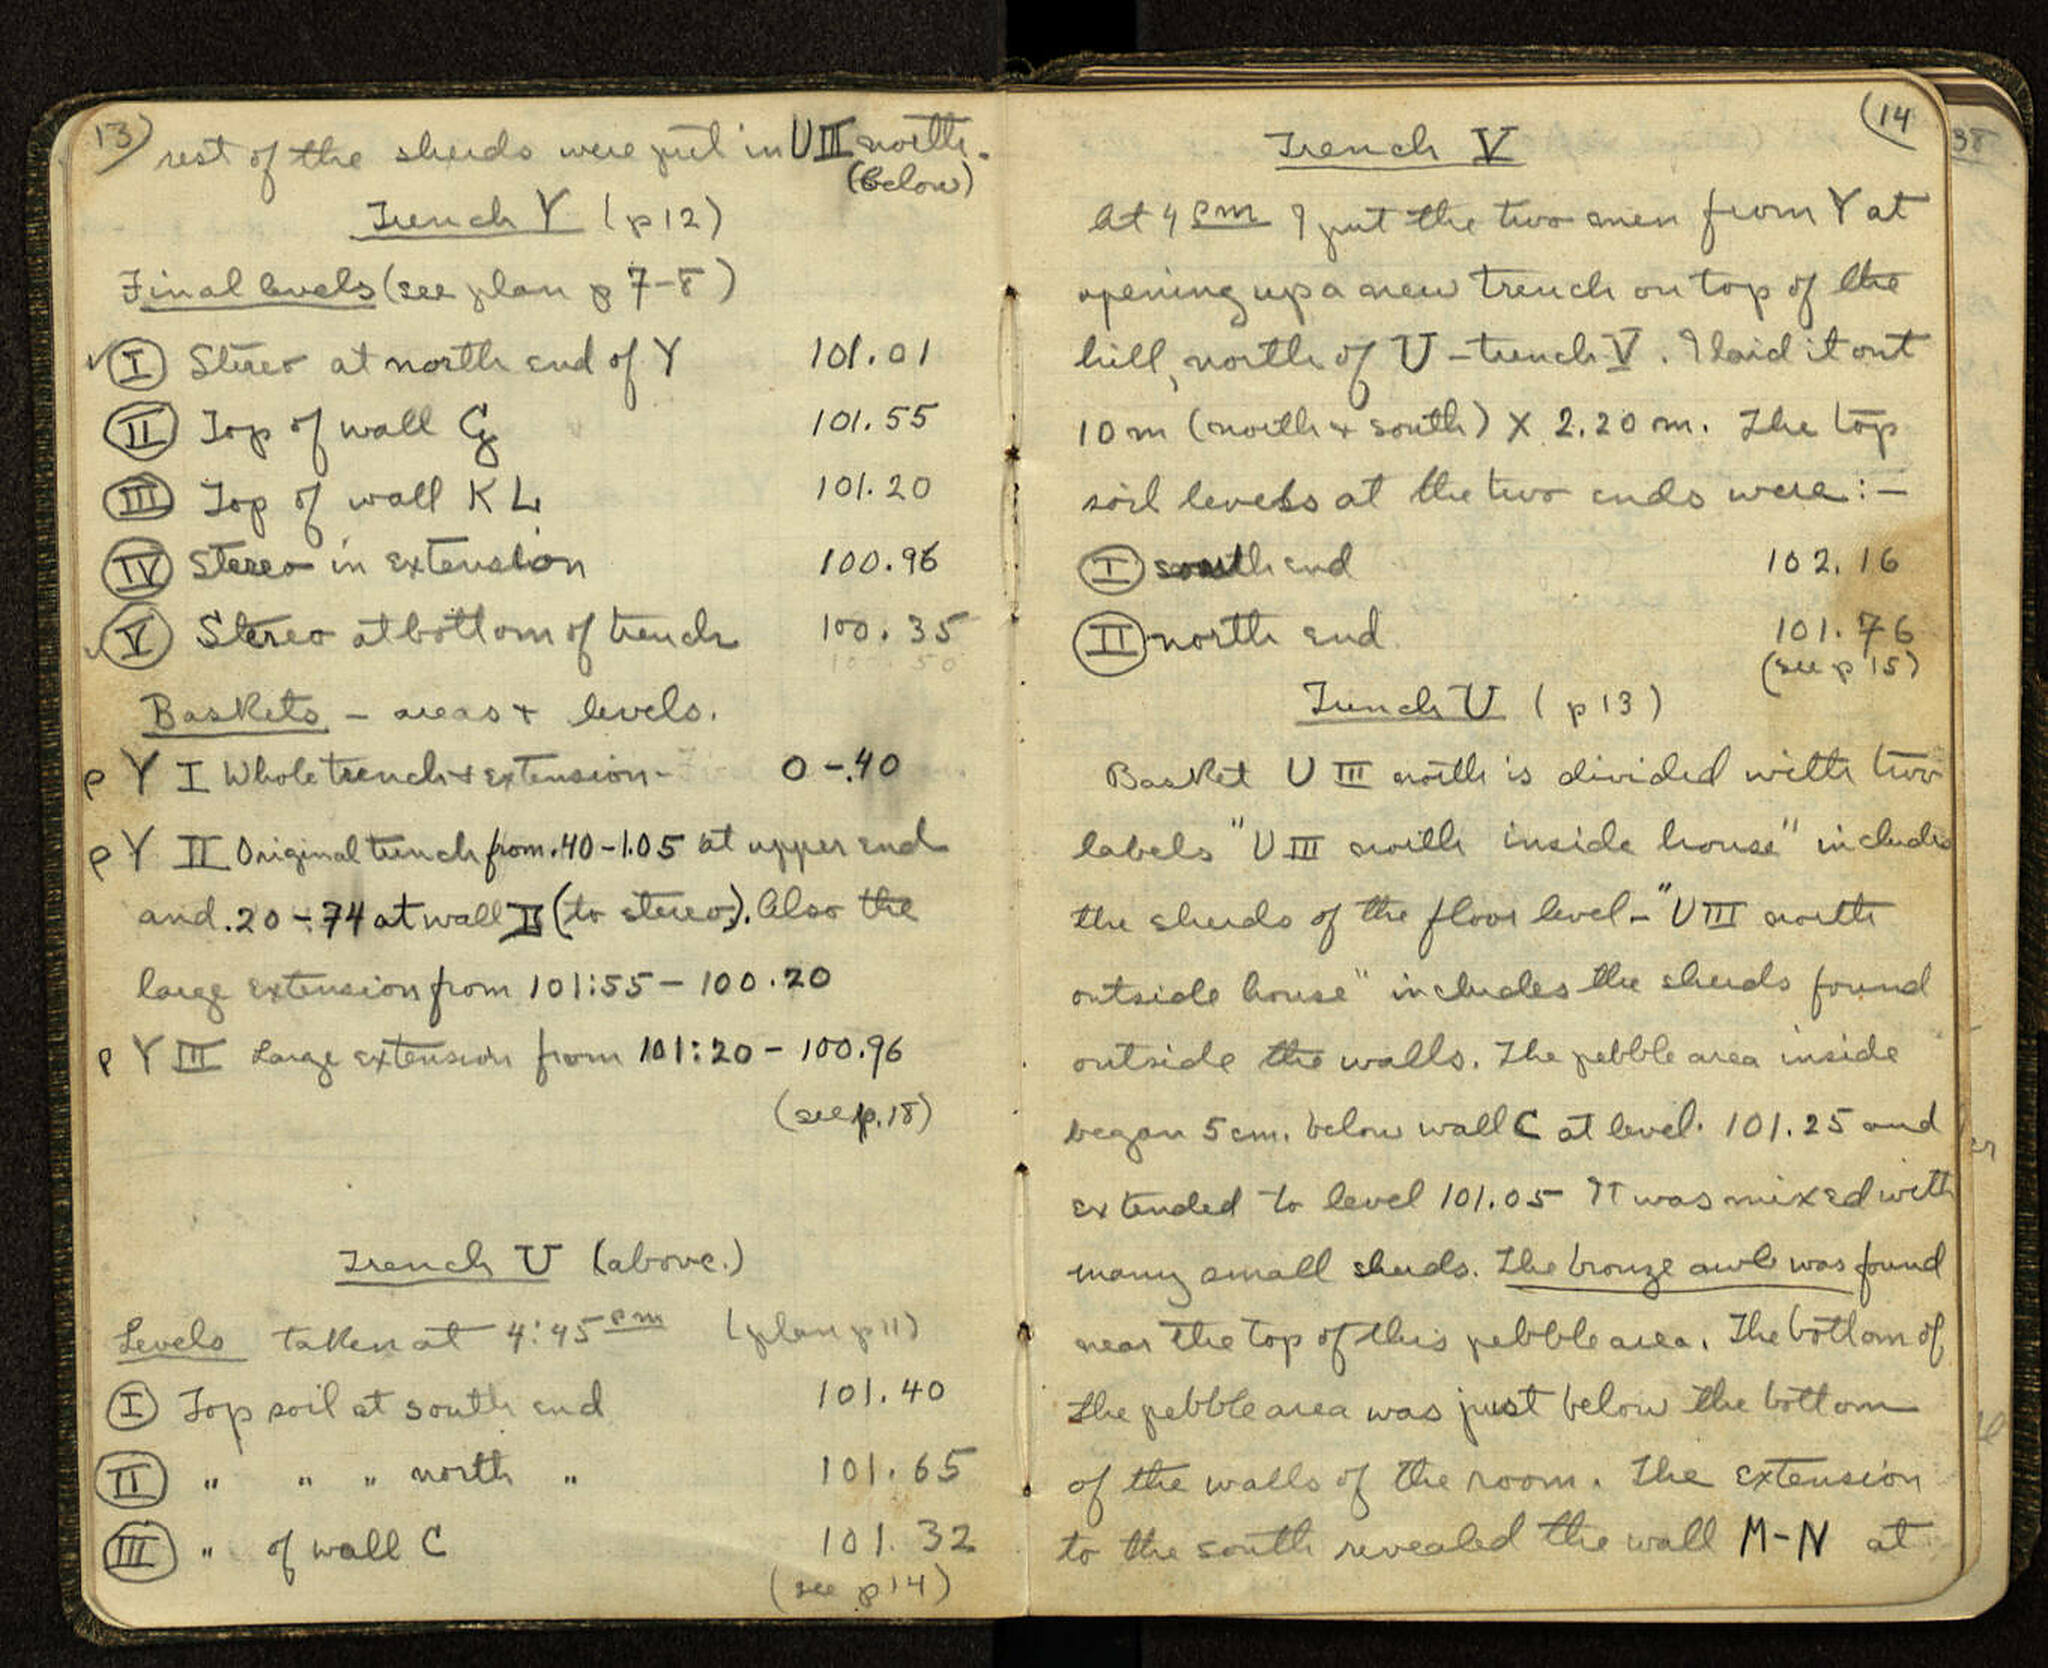 13)
rest of the sherds were put in U III north.
(below)
Trench Y (p12)
Final levels (see plan p 7-8)
✓ I Stereo at north end of Y 101.01
II Top of wall G 101.55
III Top of wall KL 101.20
IV Stereo in extension 100.96
✓ V Stereo at bottom of trench 100.35
Baskets - areas + levels.
P Y I Whole trench + extension - 0 - .40
P Y II Original trench from .40 - 1.05 at upper end
and .20 - .74 at wall (to stereo). Also the
large extension from 101:55 - 100.20
P Y III Large extension from 101:20 - 100.96
(see p. 18)
Trench U (above.)
Levels taken at 4:45 pm (plan p 11)
I Top soil at south end 101.40
II " " " north " 101.65
III " of wall C 101.32
(see p 14)
(14
Trench V
At 4 pm I put the two men from Y at
opening up a new trench on top of the
hill, north of U - trench V. I laid it out
10 m (north + south) X 2.20 m. The top
soil levels at the two ends were:-
I south end 102.16
II north end 101.76
(see p 15)
Trench U (p13)
Basket U III north is divided with two
labels "U III north inside house" includes
the sherds of the floor level - "U III north
outside house" includes the sherds found
outside the walls. The pebble area inside
began 5 cm. below wall C at level. 101.25 and
extended to level 101.05 It was mixed with
many small sherds. The bronze awl was found
near the top of this pebble area. The bottom of
the pebble area was just below the bottom
of the walls of the room. The extension
to the south revealed the wall M-N at
38